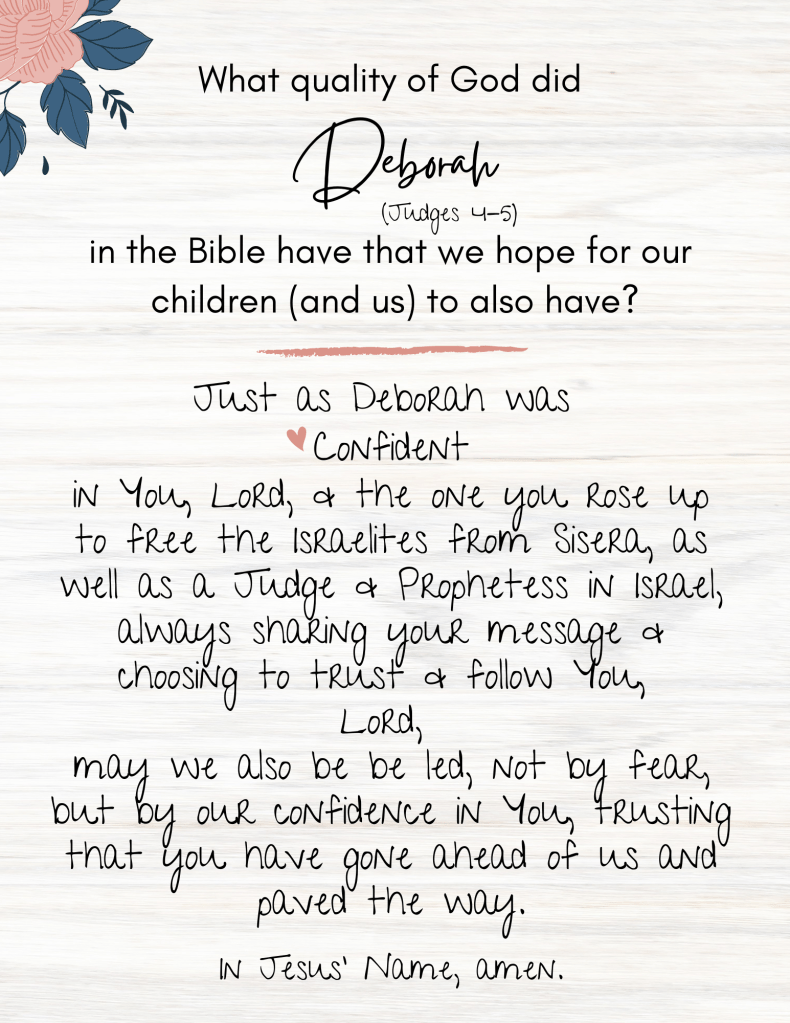 What quality of God did
Deborah
(Judges 4-5)
in the Bible have that we hope for our
children (and us) to also have?
Just as Deborah was
Confident
in You, Lord, & the one you rose up
to free the Israelites from Sisera, as
well as a Judge & Prophetess in Israel,
always sharing your message &
choosing to trust & follow You,
Lord,
may we also be be led, not by fear,
but by our confidence in You, trusting
that you have gone ahead of us and
paved the way.
In Jesus' Name, amen.